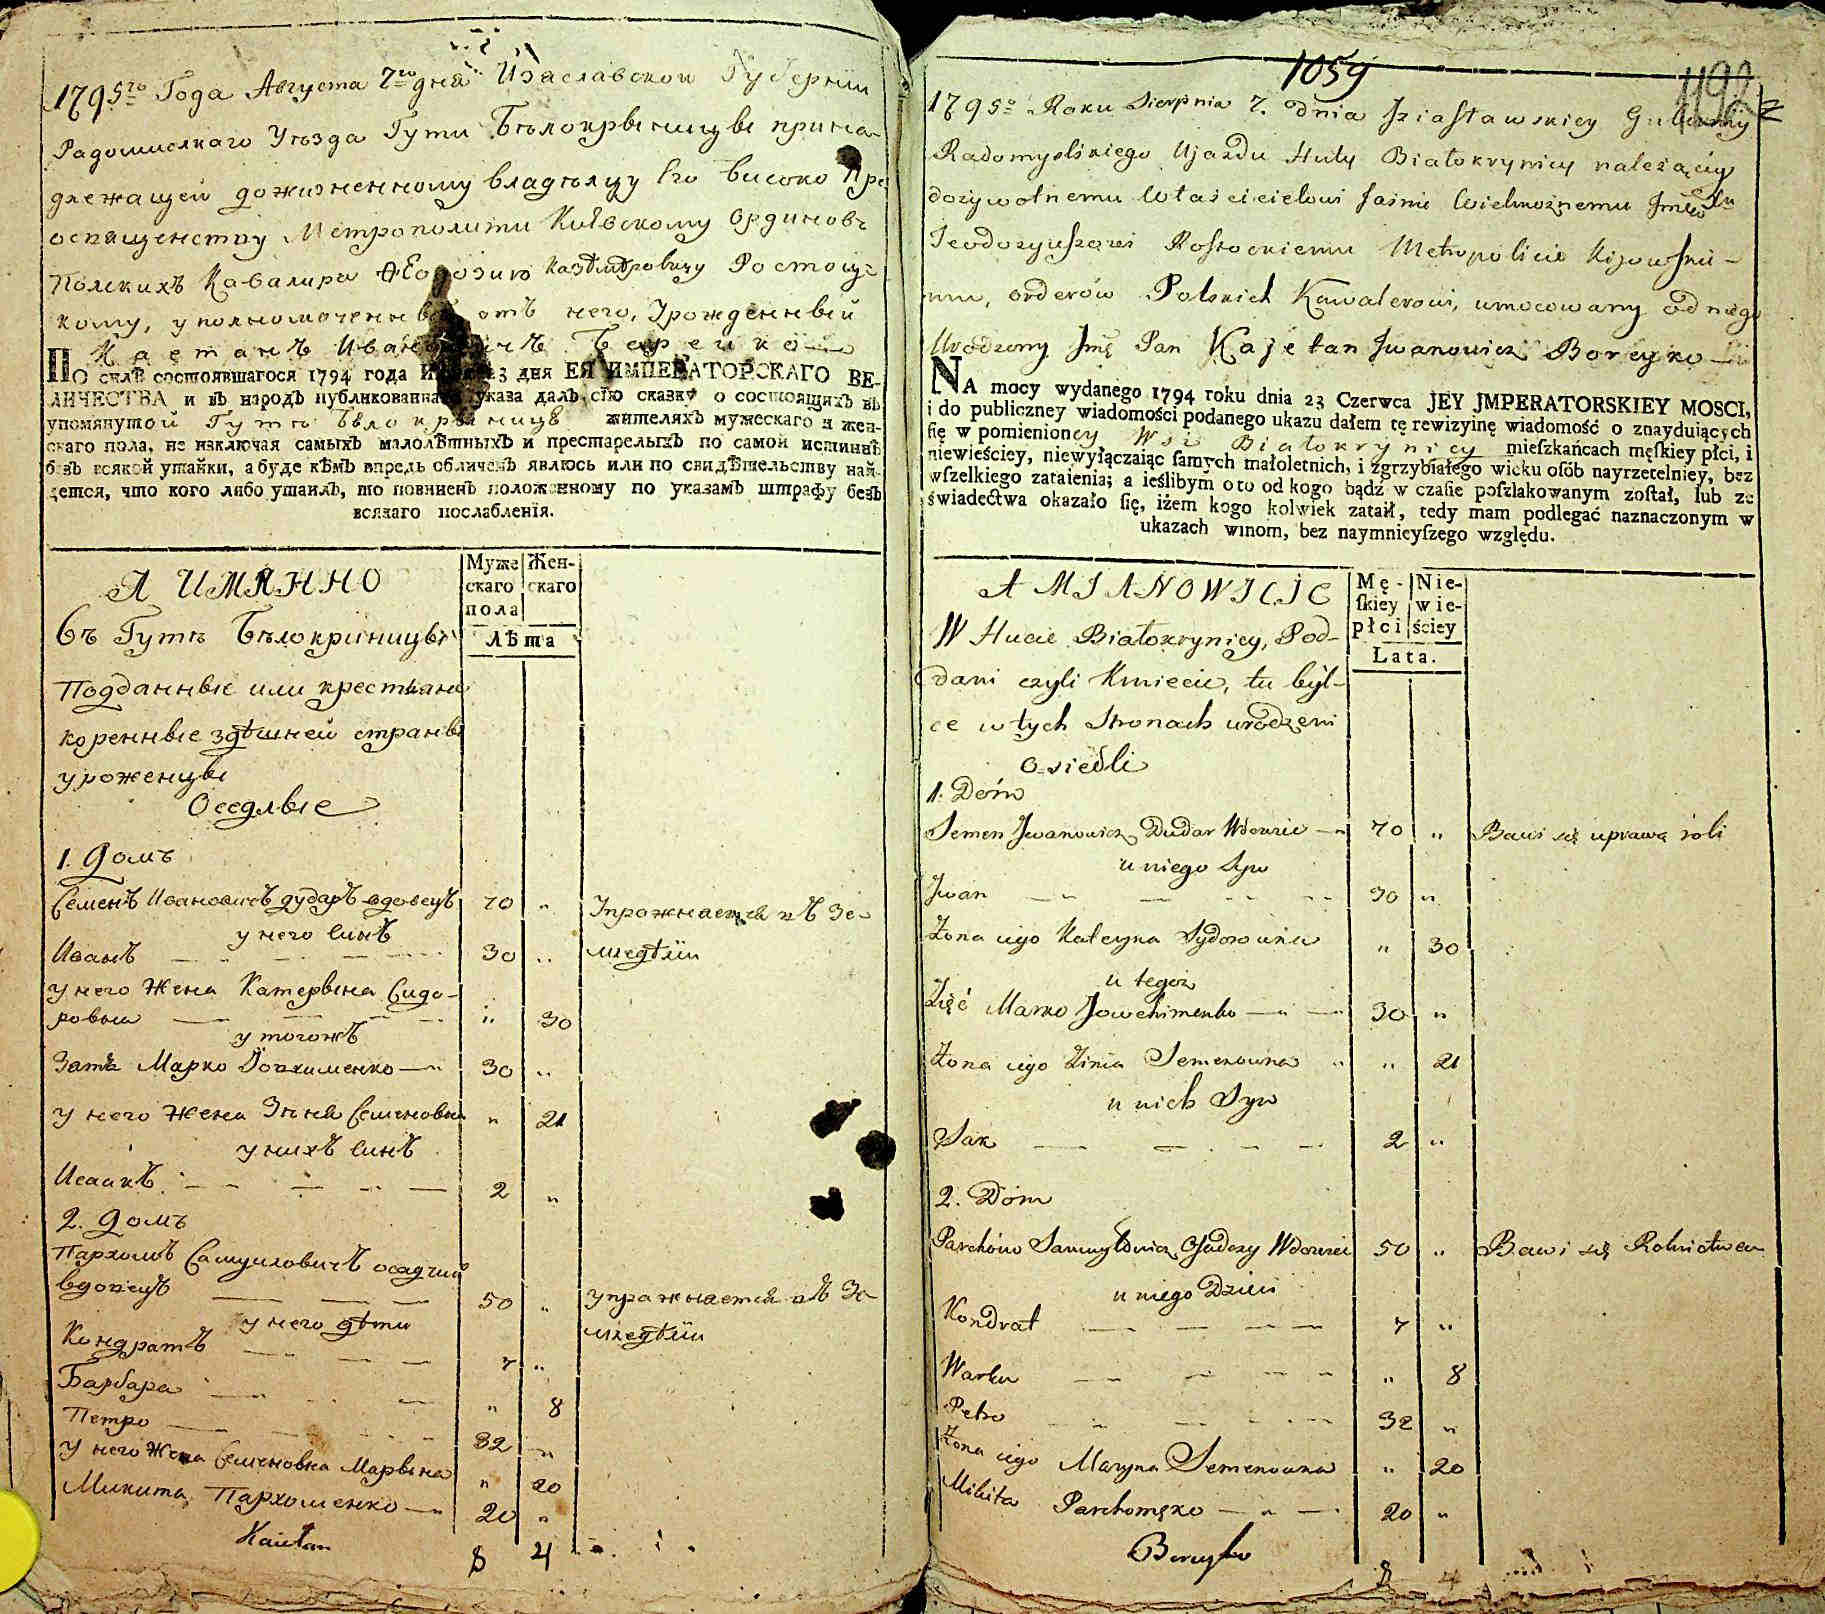 1795го Года Августа 7го дня Изаславской Губерніи
Радомислкаго Уѣзда Гути Бѣлокрыницы прина-
длежащей дожизненному владѣлцу Его високо Пре
освященству Митрополити Киевскому Ординовъ
Полскихъ Кавалира Ѳеодозию Казѣмѣровичу Ростоц-
кому, уполномоченный отъ него, Урожденный
Каетанъ Ивановичъ Борейко
ПО силѣ состоявшагося 1794 года 23 дня ЕЯ ИМПЕРАТОРСКАГО ВЕ-
ЛИЧЕСТВА и въ народъ публикованнаго указа далъ сію сказку о состоящихъ въ
упомянутой Гутѣ Бѣлокриницѣ жителяхъ мужескаго и жен-
скаго пола, не изключая самыхъ малолѣтныхъ и престарелыхъ по самой истиннѣ
безъ всякой утайки, а буде кѣмъ впредь обличенъ явлюсь или по свидѣтельству най-
дется, что кого либо утаилъ, то повиненъ положенному по указамъ штрафу безъ
всякаго послабленія.
А ИМЯННО
Муже
скаго
пола
Жен-
скаго
Лѣта
Съ Гутѣ Бѣлокриницы
Подданные или крестьяне
коренные здѣшней страны
уроженцы
Оседлые
1. Домъ
Семенъ Ивановичъ дударъ вдовецъ 70 „ Упражнается въ Зе-
у него синъ
Иванъ 30 „ мледѣліи
у него Жена Катерына Сидо-
ровна „ 30
у тогожъ
Зать Марко Йовхименко 30 „
у него Жена Зѣня Семеновна „ 21
у нихъ синъ
Исаикъ 2 „
2. Домъ
Пархомъ Самуиловичъ осадчий
вдовецъ 50 „ упражнается въ Зе-
у него дѣти мледѣліи
Кондратъ 7 „
Барбара „ 8
Петро 32 „
у него Жена Семеновна Марына „ 20
Микита Пархоменко 20 „
Kaietan 8 4
1059
1795o Roku Sierpnia 7. dnia Iziasławskiey Gubernij
Radomyslskiego Ujazdu Huty Białokrynicy należącey
dożywotnemu Właścicielowi Jaśnie Wielmożnemu Jmści
Teodozyuszowi Rostockiemu Metropolicie Kijowski-
mu, orderów Polskich Kawalerowi, umocowany od niego
Urodzony Jmę Pan Kajetan Jwanowicz Boreyko
NA mocy wydanego 1794 roku dnia 23 Czerwca JEY JMPERATORSKIEY MOSCI,
i do publiczney wiadomości podanego ukazu dałem tę rewizyinę wiadomość o znayduiących
ſię w pomienioney Wsi Białokrynicy mieſzkańcach męſkiey płci, i
niewieściey, niewyłączaiąc ſamych małoletnich, i zgrzybiałego wieku oſób nayrzetelniey, bez
wſzelkiego zataienia; a ieślibym oto od kogo bądź w czaſie poſzlakowanym zoſtał, lub ze
świadectwa okazało ſię, iżem kogo kolwiek zataił, tedy mam podlegać naznaczonym w
ukazach winom, bez naymnieyſzego względu.
A MIANOWICIE
Mę-
ſkiey
płci
Nie-
wie-
ściey
Lata.
W Hucie Białokrynicy, Pod-
dani czyli Kmiecie, tu był-
ce w tych Stronach urodzeni
Osiedli
1. Dom
Semen Jwanowicz Dudar Wdowiec 70 „ Bawi się uprawą roli
u niego Syn
Jwan 30 „
Żona iego Kateryna Sydorowna „ 30
u tegoż
Zięć Marko Jowchimenko 30 „
Żona iego Zinia Semenowna „ 21
u nich Syn
Sak 2 „
2. Dom
Parchom Samuyłowicz Osadczy Wdowiec 50 „ Bawi się Rolnictwem
u niego Dzieci
Kondrat 7 „
Warka „ 8
Petro 32 „
Żona iego Maryna Semenowna „ 20
Mikita Parchomęko 20 „
Boreyko 8 4